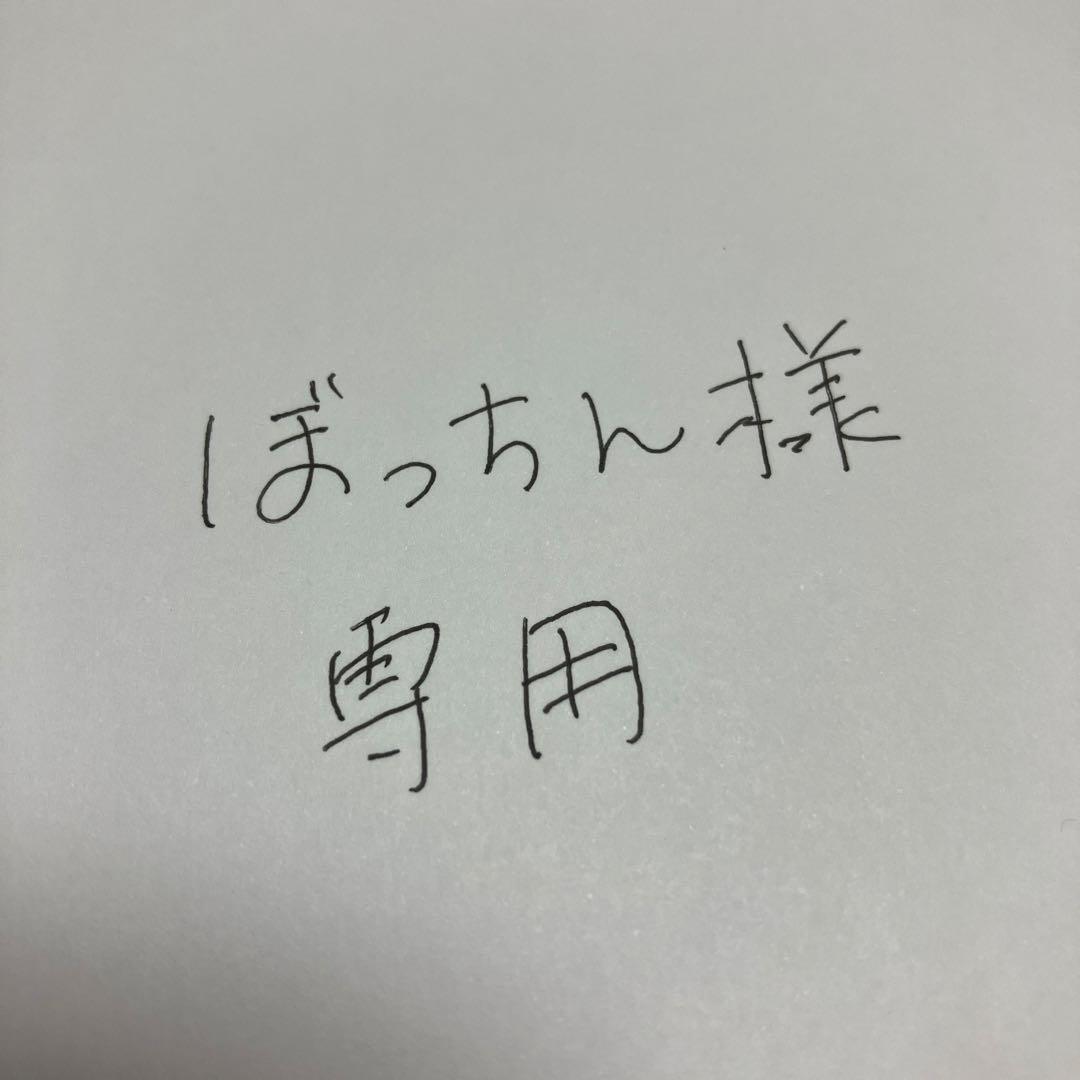 ぼっちん様
専用